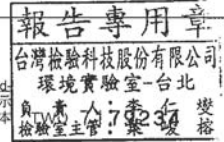 報告專用章
台灣檢驗科技股份有限公司
環境實驗室-台北
負責人:李仁竣
檢驗室主管:葉峻榕
TWA 7179234